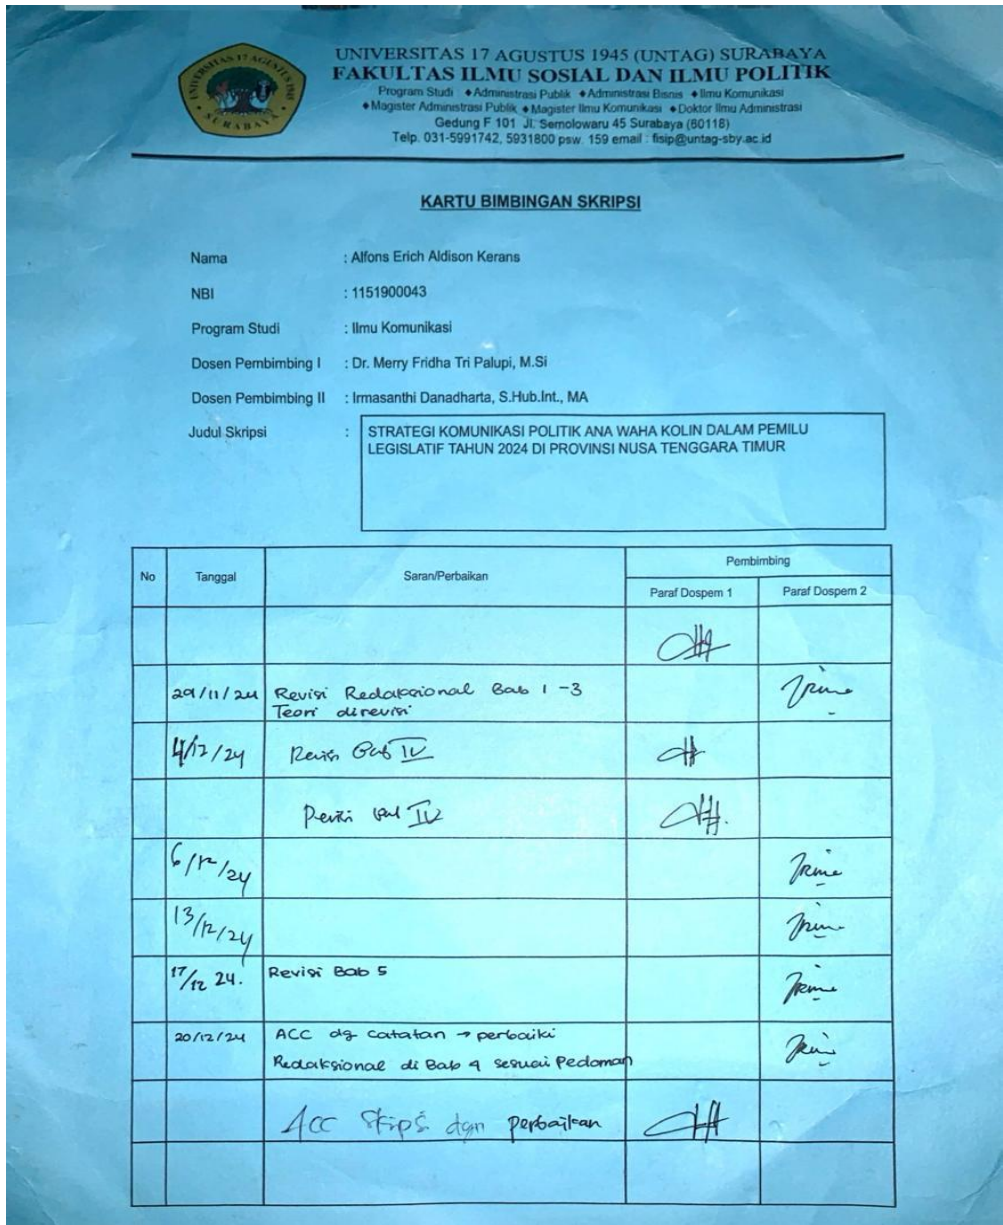 UNIVERSITAS 17 AGUSTUS 1945 (UNTAG) SURABAYA
FAKULTAS ILMU SOSIAL DAN ILMU POLITIK
Program Studi : ◆Administrasi Publik ◆Administrasi Bisnis ◆Ilmu Komunikasi
◆Magister Administrasi Publik ◆Magister Ilmu Komunikasi ◆Doktor Ilmu Administrasi
Gedung F 101 Jl. Semolowaru 45 Surabaya (60118)
Telp. 031-5991742, 5931800 psw. 159 email : fisip@untag-sby.ac.id
UNIVERSITAS 17 AGUSTUS 1945
SURABAYA
KARTU BIMBINGAN SKRIPSI
Nama : Alfons Erich Aldison Kerans
NBI : 1151900043
Program Studi : Ilmu Komunikasi
Dosen Pembimbing I : Dr. Merry Fridha Tri Palupi, M.Si
Dosen Pembimbing II : Irmasanthi Danadharta, S.Hub.Int., MA
Judul Skripsi : STRATEGI KOMUNIKASI POLITIK ANA WAHA KOLIN DALAM PEMILU
LEGISLATIF TAHUN 2024 DI PROVINSI NUSA TENGGARA TIMUR
No Tanggal Saran/Perbaikan Pembimbing
Paraf Dospem 1 Paraf Dospem 2
29/11/24 Revisi Redaksional Bab 1 - 3
Teori direvisi
4/12/24 Revisi Bab IV
Revisi Bab IV
6/12/24
13/12/24
17/12 24. Revisi Bab 5
20/12/24 ACC dg catatan → perbaiki
Redaksional di Bab 4 sesuai Pedoman
ACC Skripsi dgn perbaikan